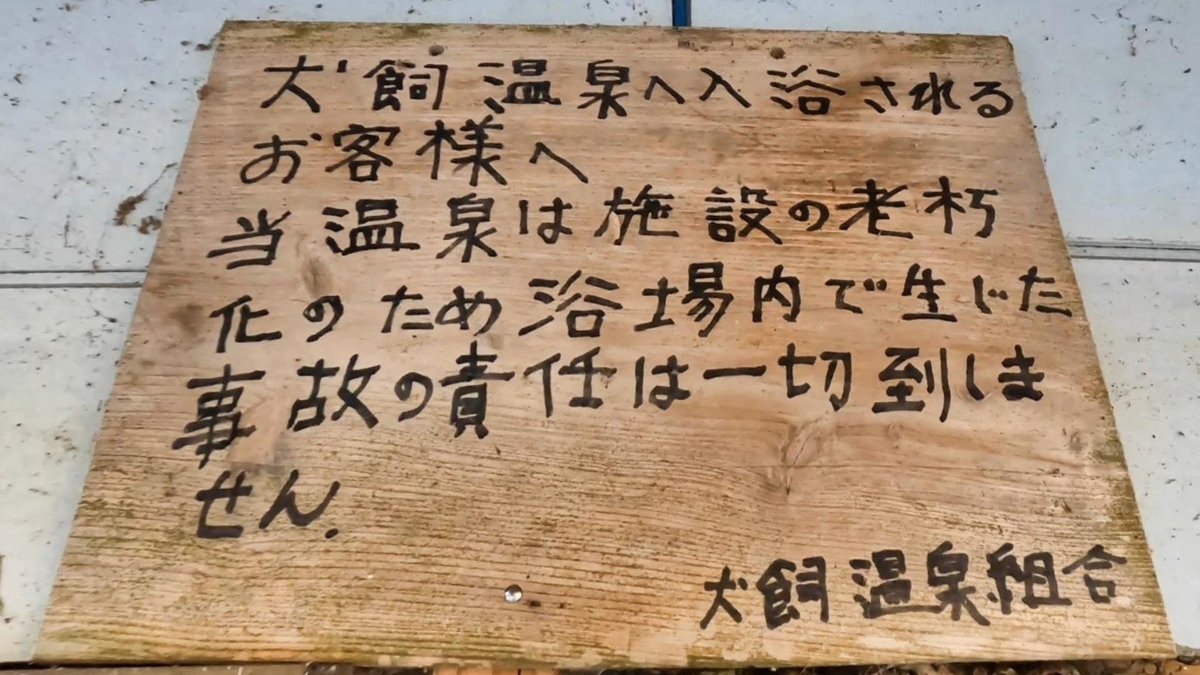 犬飼温泉へ入浴される
お客様へ
当温泉は施設の老朽
化のため浴場内で生じた
事故の責任は一切到しま
せん.
犬飼温泉組合